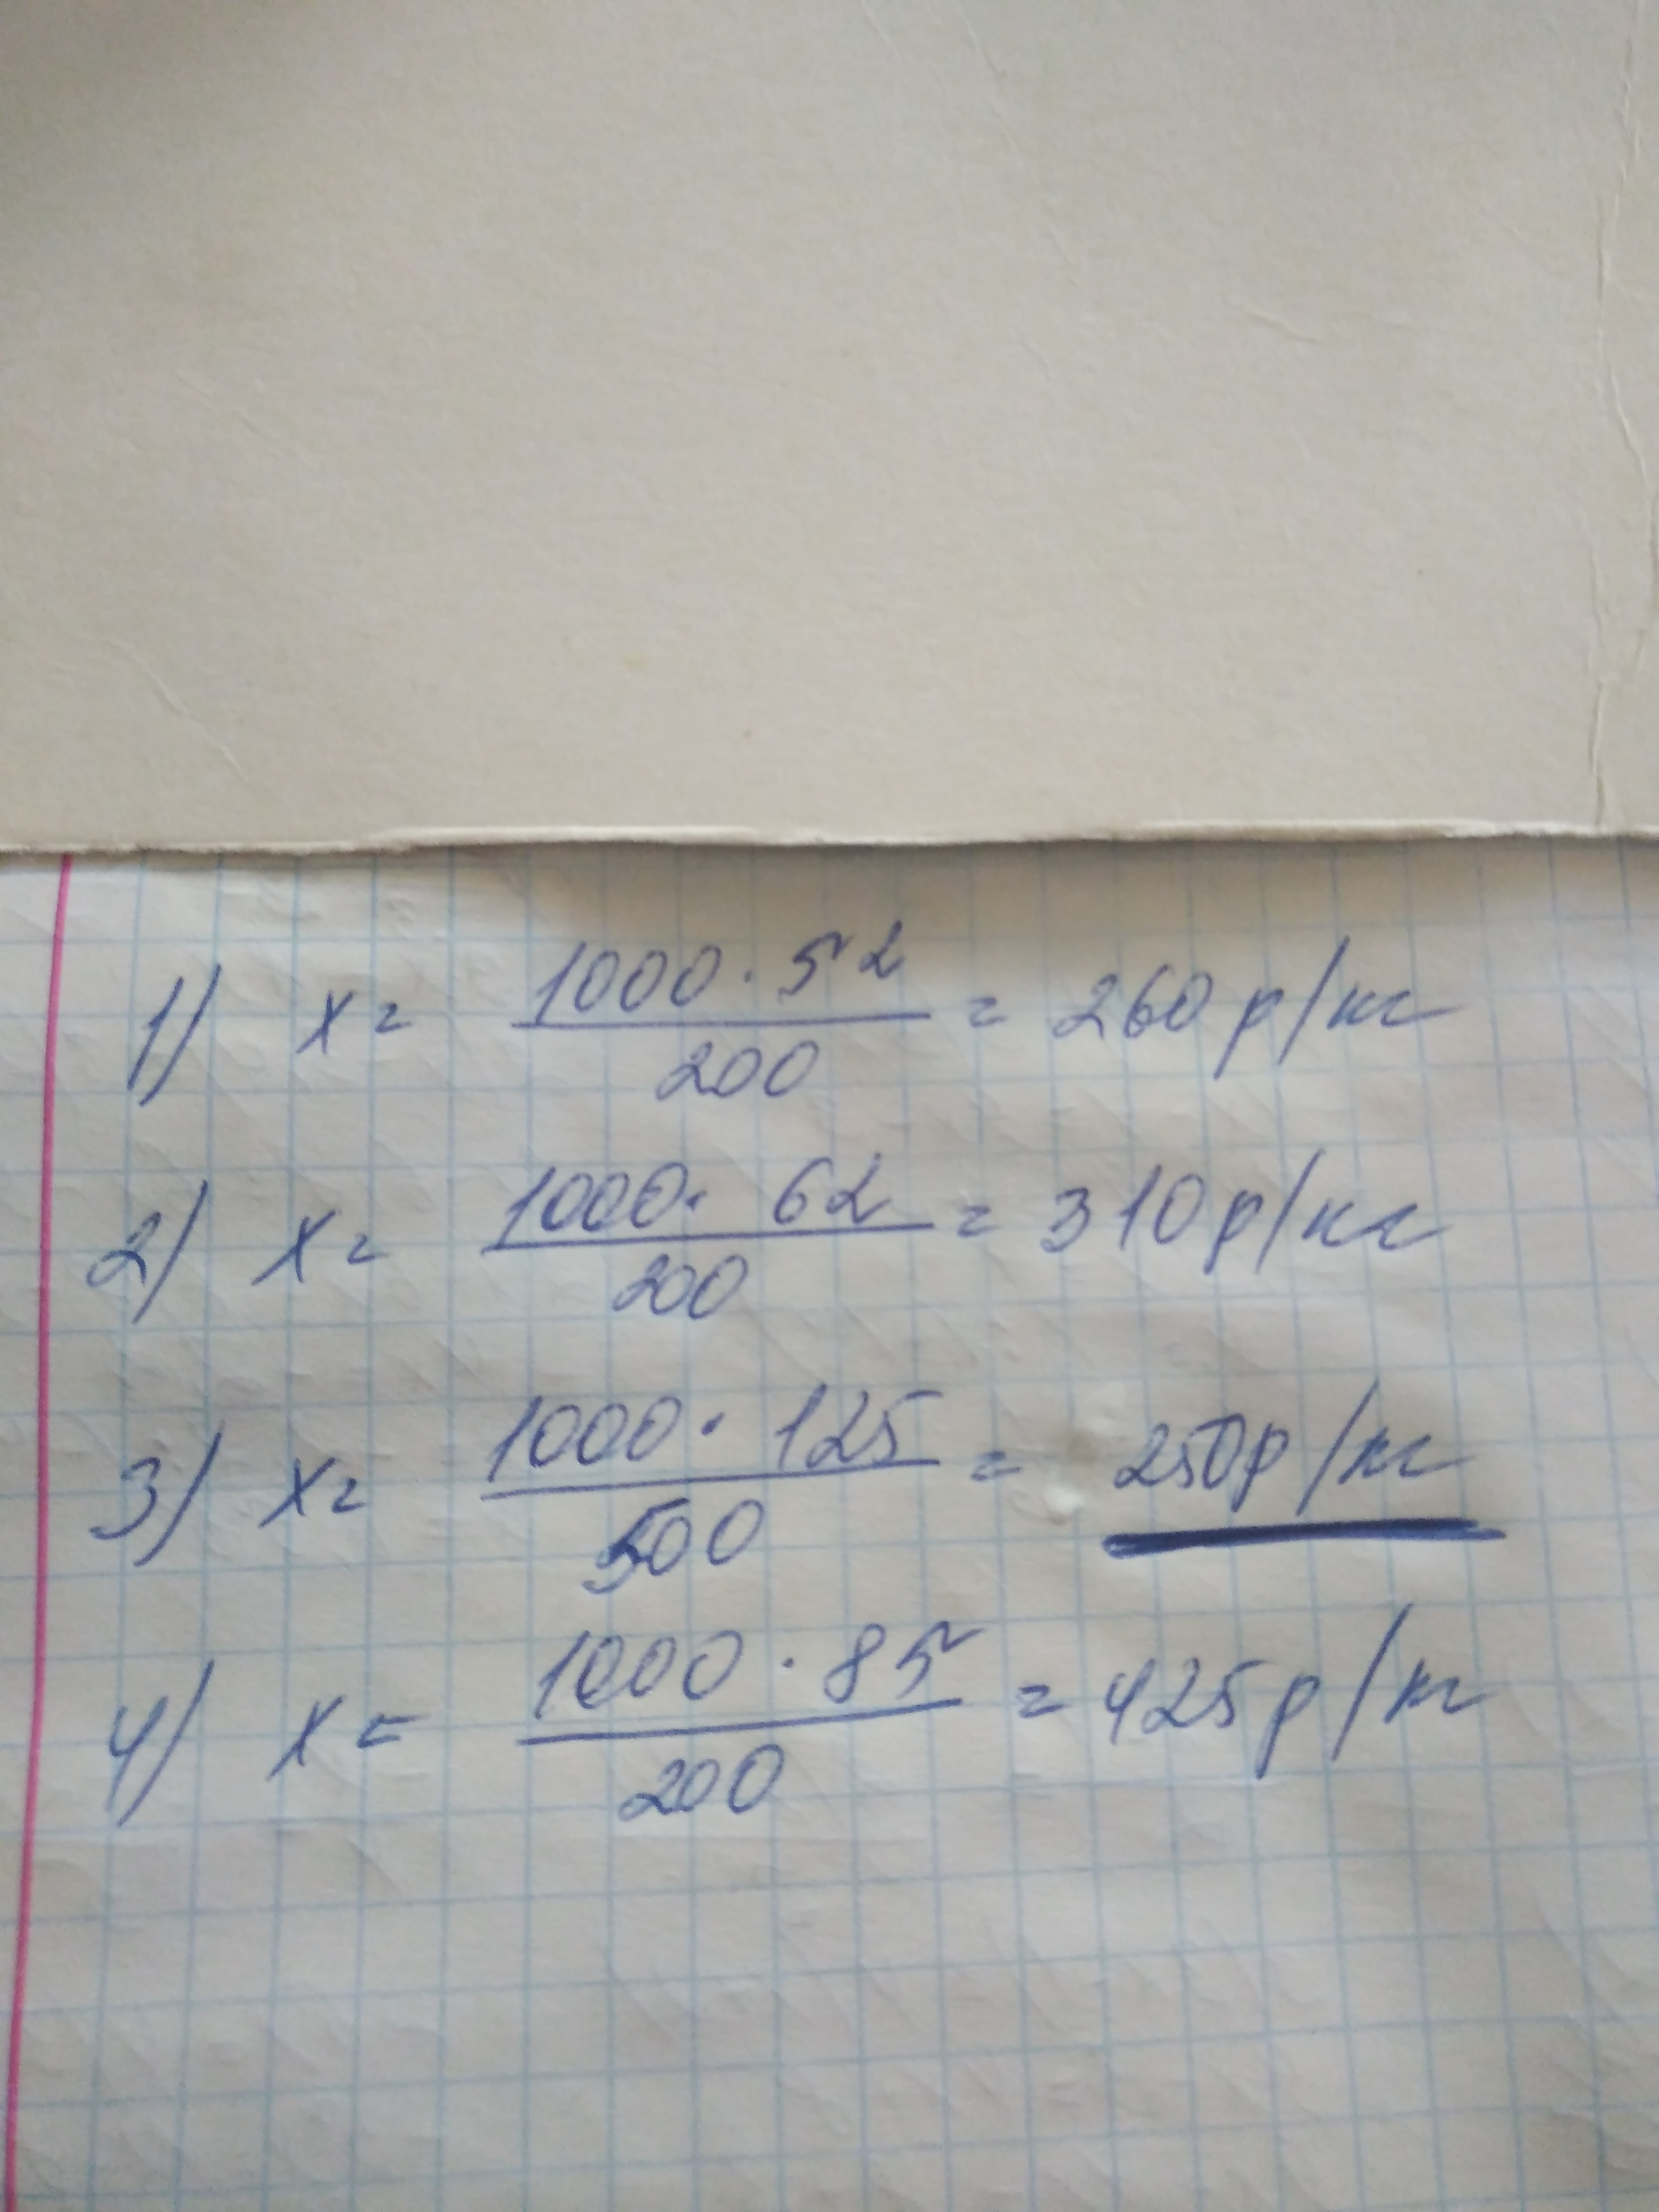 1) x = 1000 · 52 / 200 = 260 р/кг
2) x = 1000 · 62 / 200 = 310 р/кг
3) x = 1000 · 125 / 500 = 250 р/кг
4) x = 1000 · 85 / 200 = 425 р/кг